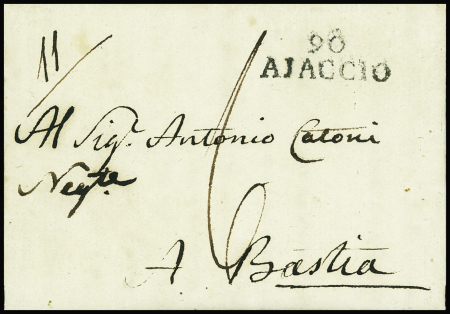 11
90
AJACCIO
Al Sig.r Antonio Catoni
Neg.te
6
A Bastia